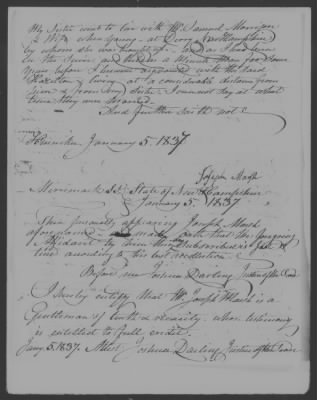 My Sister went to live with Mr Samuel Morrison
in 1774 when young - at Derry New Hampshire
by whom she was brought up - and as I had been
in the and was a Minute Man for some
years before I became acquainted with the said
Hazelton & living at a considerable distance from
him & from my Sister I cannot say at what
time they were married.
And further saith not
Henniker January 5. 1837
Joseph Marsh
Merrimack Ss. State of New Hampshire
January 5. 1837
Then personally appearing Joseph Marsh
aforenamed - made oath that the foregoing
Affidavit by him subscribed is just &
true according to his best recollection.
Before me Joshua Darling Justice of the Peace
I hereby certify that Mr Joseph Marsh is a
Gentleman of truth & veracity whose testimony
is entitled to full credit.
Jany 5. 1837. Attest Joshua Darling Justice of the Peace